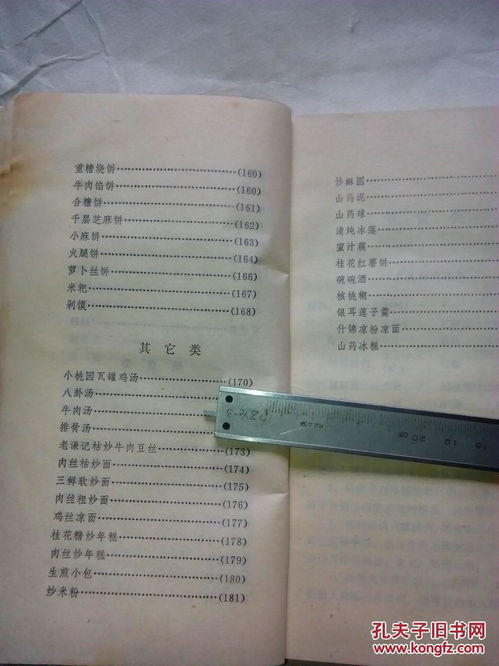 重糖烧饼……………(160)
牛肉馅饼……………(160)
合糖饼……………(161)
千层芝麻饼……………(162)
小麻饼……………(163)
火腿饼……………(164)
萝卜丝饼……………(166)
米粑……………(167)
剁馍……………(168)
其它类
小桃园瓦罐鸡汤……………(170)
八卦汤……………
牛肉汤……………
排骨汤……………
老谦记枯炒牛肉豆丝……………(173)
肉丝枯炒面……………(174)
三鲜软炒面……………(175)
肉丝粗炒面……………(176)
鸡丝凉面……………(177)
桂花糖炒年糕……………(178)
肉丝炒年糕……………(179)
生煎小包……………(180)
炒米粉……………(181)
炒酥圆……………
山药泥……………
山药球……………
清炖冰莲……………
蜜汁藕……………
桂花红薯饼……………
碗碗酒……………
核桃糊……………
银耳莲子羹……………
什锦凉粉凉面……………
山药冰糕……………
18 19 20 CM
孔夫子旧书网
www.kongfz.com